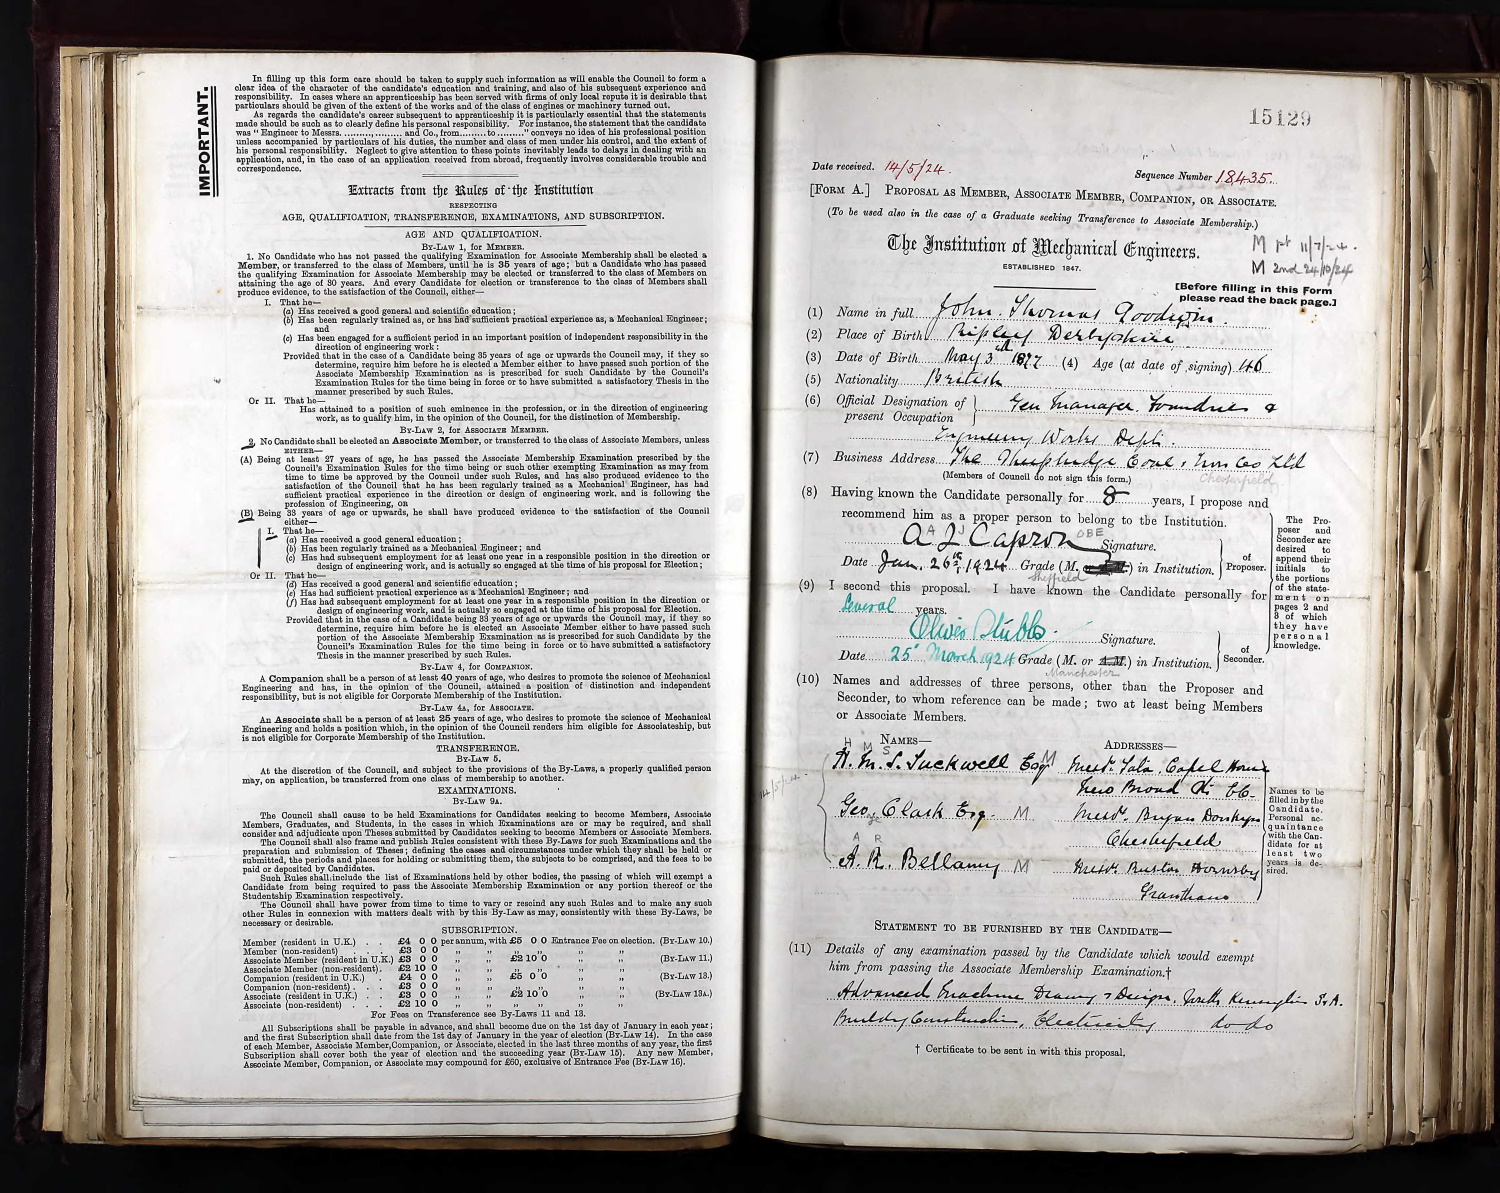 IMPORTANT.
In filling up this form care should be taken to supply such information as will enable the Council to form a
clear idea of the character of the candidate's education and training, and also of his subsequent experience and
responsibility. In cases where an apprenticeship has been served with firms of only local repute it is desirable that
particulars should be given of the extent of the works and of the class of engines or machinery turned out.
As regards the candidate's career subsequent to apprenticeship it is particularly essential that the statements
made should be such as to clearly define his personal responsibility. For instance, the statement that the candidate
was "Engineer to Messrs. .................. and Co., from.........to ........." conveys no idea of his professional position
unless accompanied by particulars of his duties, the number and class of men under his control, and the extent of
his personal responsibility. Neglect to give attention to these points inevitably leads to delays in dealing with an
application, and, in the case of an application received from abroad, frequently involves considerable trouble and
correspondence.
Extracts from the Rules of the Institution
RESPECTING
AGE, QUALIFICATION, TRANSFERENCE, EXAMINATIONS, AND SUBSCRIPTION.
AGE AND QUALIFICATION.
BY-LAW 1, FOR MEMBER.
1. No Candidate who has not passed the qualifying Examination for Associate Membership shall be elected a
Member, or transferred to the class of Members, until he is 35 years of age; but a Candidate who has passed
the qualifying Examination for Associate Membership may be elected or transferred to the class of Members on
attaining the age of 30 years. And every Candidate for election or transference to the class of Members shall
produce evidence, to the satisfaction of the Council, either—
I. That he—
(a) Has received a good general and scientific education;
(b) Has been regularly trained as, or has had sufficient practical experience as, a Mechanical Engineer;
and
(c) Has been engaged for a sufficient period in an important position of independent responsibility in the
direction of engineering work:
Provided that in the case of a Candidate being 35 years of age or upwards the Council may, if they so
determine, require him before he is elected a Member either to have passed such portion of the
Associate Membership Examination as is prescribed for such Candidate by the Council's
Examination Rules for the time being in force or to have submitted a satisfactory Thesis in the
manner prescribed by such Rules.
Or II. That he—
Has attained to a position of such eminence in the profession, or in the direction of engineering
work, as to qualify him, in the opinion of the Council, for the distinction of Membership.
BY-LAW 2, FOR ASSOCIATE MEMBER.
2. No Candidate shall be elected an Associate Member, or transferred to the class of Associate Members, unless
EITHER—
(A) Being at least 27 years of age, he has passed the Associate Membership Examination prescribed by the
Council's Examination Rules for the time being or such other exempting Examination as may from
time to time be approved by the Council under such Rules, and has also produced evidence to the
satisfaction of the Council that he has been regularly trained as a Mechanical Engineer, has had
sufficient practical experience in the direction or design of engineering work, and is following the
profession of Engineering, or
(B) Being 33 years of age or upwards, he shall have produced evidence to the satisfaction of the Council
either—
I. That he—
(a) Has received a good general education;
(b) Has been regularly trained as a Mechanical Engineer; and
(c) Has had subsequent employment for at least one year in a responsible position in the direction or
design of engineering work, and is actually so engaged at the time of his proposal for Election;
Or II. That he—
(d) Has received a good general and scientific education;
(e) Has had sufficient practical experience as a Mechanical Engineer; and
(f) Has had subsequent employment for at least one year in a responsible position in the direction or
design of engineering work, and is actually so engaged at the time of his proposal for Election.
Provided that in the case of a Candidate being 33 years of age or upwards the Council may, if they so
determine, require him before he is elected an Associate Member either to have passed such
portion of the Associate Membership Examination as is prescribed for such Candidate by the
Council's Examination Rules for the time being in force or to have submitted a satisfactory
Thesis in the manner prescribed by such Rules.
BY-LAW 4, FOR COMPANION.
A Companion shall be a person of at least 40 years of age, who desires to promote the science of Mechanical
Engineering and has, in the opinion of the Council, attained a position of distinction and independent
responsibility, but is not eligible for Corporate Membership of the Institution.
BY-LAW 4A, FOR ASSOCIATE.
An Associate shall be a person of at least 25 years of age, who desires to promote the science of Mechanical
Engineering and holds a position which, in the opinion of the Council renders him eligible for Associateship, but
is not eligible for Corporate Membership of the Institution.
TRANSFERENCE.
BY-LAW 5.
At the discretion of the Council, and subject to the provisions of the By-Laws, a properly qualified person
may, on application, be transferred from one class of membership to another.
EXAMINATIONS.
BY-LAW 9A.
The Council shall cause to be held Examinations for Candidates seeking to become Members, Associate
Members, Graduates, and Students, in the cases in which Examinations are or may be required, and shall
consider and adjudicate upon Theses submitted by Candidates seeking to become Members or Associate Members.
The Council shall also frame and publish Rules consistent with these By-Laws for such Examinations and the
preparation and submission of Theses; defining the cases and circumstances under which they shall be held or
submitted, the periods and places for holding or submitting them, the subjects to be comprised, and the fees to be
paid or deposited by Candidates.
Such Rules shall include the list of Examinations held by other bodies, the passing of which will exempt a
Candidate from being required to pass the Associate Membership Examination or any portion thereof or the
Studentship Examination respectively.
The Council shall have power from time to time to vary or rescind any such Rules and to make any such
other Rules in connexion with matters dealt with by this By-Law as may, consistently with these By-Laws, be
necessary or desirable.
SUBSCRIPTION.
Member (resident in U.K.) . . £4 0 0 per annum, with £5 0 0 Entrance Fee on election. (BY-LAW 10.)
Member (non-resident) . . £3 0 0 " " " " "
Associate Member (resident in U.K.) £3 0 0 " " £2 10 0 " " (BY-LAW 11.)
Associate Member (non-resident). £2 10 0 " " " " "
Companion (resident in U.K.) . £4 0 0 " " £5 0 0 " " (BY-LAW 12.)
Companion (non-resident) . . £3 0 0 " " " " "
Associate (resident in U.K.) . . £3 0 0 " " £2 10 0 " " (BY-LAW 13A.)
Associate (non-resident) . . £2 10 0 " " " " "
For Fees on Transference see By-Laws 11 and 13.
All Subscriptions shall be payable in advance, and shall become due on the 1st day of January in each year;
and the first Subscription shall date from the 1st day of January in the year of election (BY-LAW 14). In the case
of each Member, Associate Member, Companion, or Associate, elected in the last three months of any year, the first
Subscription shall cover both the year of election and the succeeding year (BY-LAW 15). Any new Member,
Associate Member, Companion, or Associate may compound for £60, exclusive of Entrance Fee (BY-LAW 16).
15129
Date received. 14/5/24.
Sequence Number 18435.
[FORM A.] PROPOSAL AS MEMBER, ASSOCIATE MEMBER, COMPANION, OR ASSOCIATE.
(To be used also in the case of a Graduate seeking Transference to Associate Membership.)
The Institution of Mechanical Engineers.
ESTABLISHED 1847.
M 1st 11/7/24.
M 2nd 24/10/24
[Before filling in this Form
please read the back page.]
(1) Name in full John Thomas Goodwin.
(2) Place of Birth Ripley Derbyshire
(3) Date of Birth May 3rd 1877 (4) Age (at date of signing) 46
(5) Nationality British
(6) Official Designation of
present Occupation
Gen Manager. Foundries &
Engineering Works Dept.
(7) Business Address The Sheepbridge Coal & Iron Co Ltd
(Members of Council do not sign this form.) Chesterfield
(8) Having known the Candidate personally for 8 years, I propose and
recommend him as a proper person to belong to the Institution.
A J OBE
A J Capron Signature.
Date Jan. 26th 1924 Grade (M. ) in Institution.
of
Proposer.
Sheffield
(9) I second this proposal. I have known the Candidate personally for
Several years.
Oliver Stubbs. Signature.
Date 25 March 1924 Grade (M. or A.M.) in Institution.
of
Seconder.
Manchester
The Pro-
poser and
Seconder are
desired to
append their
initials to
the portions
of the state-
ment on
pages 2 and
3 of which
they have
personal
knowledge.
(10) Names and addresses of three persons, other than the Proposer and
Seconder, to whom reference can be made; two at least being Members
or Associate Members.
NAMES—
ADDRESSES—
H M S
H. M. S. Tuckwell Esq M Messrs.
New Broad St. EC.
14/5/24.
Geo. Clark Esq. M Messrs. Bryan Donkin
Chesterfield
A R
A. R. Bellamy M Messrs. Ruston Hornsby
Grantham
Names to be
filled in by the
Candidate.
Personal ac-
quaintance
with the Can-
didate for at
least two
years is de-
sired.
STATEMENT TO BE FURNISHED BY THE CANDIDATE—
(11) Details of any examination passed by the Candidate which would exempt
him from passing the Associate Membership Examination.†
Advanced Machine Drawg & Design, South Kensington S & A.
Building Construction, Electricity do do
† Certificate to be sent in with this proposal.